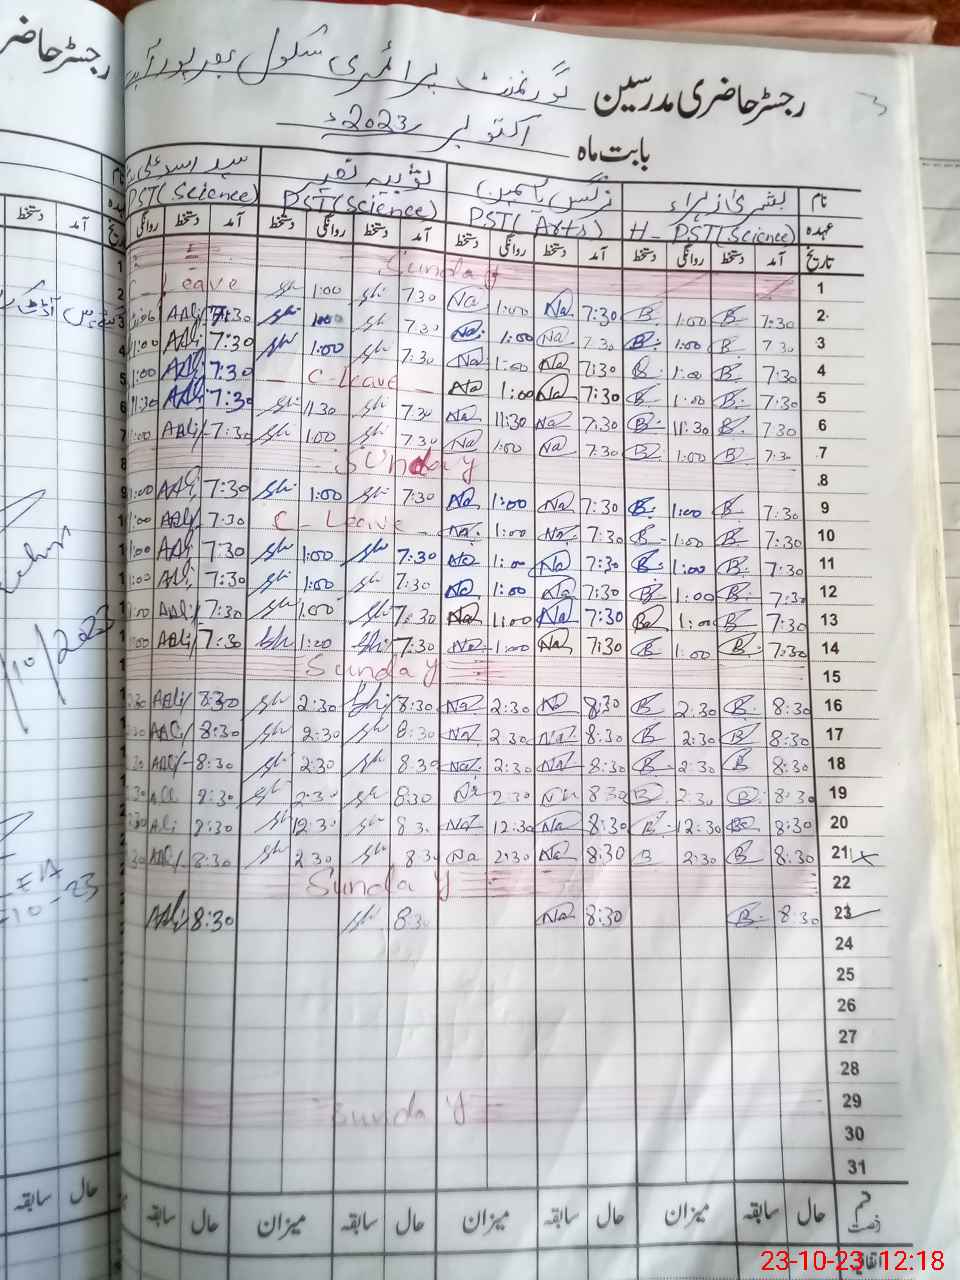 رجسٹر حاضری مدرسین گورنمنٹ پرائمری سکول
بابت ماہ اکتوبر 2023ء
نام بشریٰ زہراء نرگس یاسمین ثوبیہ سید اسد علی
عہدہ H-PST(Science) PST(Arts) PST(Science) PST(Science)
تاریخ آمد دستخط روانگی دستخط آمد دستخط روانگی دستخط آمد دستخط روانگی دستخط آمد دستخط روانگی
1 Sunday
2 7:30 B 1:00 B 7:30 Na 1:00 Na 7:30 sh 1:00 sh Leave
3 7:30 B 1:00 B 7:30 Na 1:00 Na 7:30 sh 1:00 sh 7:30 AAli
4 7:30 B 1:00 B 7:30 Na 1:00 Na 7:30 sh 1:00 sh 7:30 AAli 1:00
5 7:30 B 1:00 B 7:30 Na 1:00 Na C-Leave 7:30 AAli 1:00
6 7:30 B 11:30 B 7:30 Na 11:30 Na 7:30 sh 11:30 sh 7:30 AAli 11:30
7 7:30 B 1:00 B 7:30 Na 1:00 Na 7:30 sh 1:00 sh 7:30 AAli 1:00
8 Sunday
9 7:30 B 1:00 B 7:30 Na 1:00 Na 7:30 sh 1:00 sh 7:30 AAli 1:00
10 7:30 B 1:00 B 7:30 Na 1:00 Na C-Leave 7:30 AAli 1:00
11 7:30 B 1:00 B 7:30 Na 1:00 Na 7:30 sh 1:00 sh 7:30 AAli 1:00
12 7:30 B 1:00 B 7:30 Na 1:00 Na 7:30 sh 1:00 sh 7:30 AAli 1:00
13 7:30 B 1:00 Ba 7:30 Na 1:00 Na 7:30 sh 1:00 sh 7:30 AAli 1:00
14 7:30 B 1:00 B 7:30 Na 1:00 Na 7:30 sh 1:00 sh 7:30 AAli 1:00
15 Sunday
16 8:30 B 2:30 B 8:30 Na 2:30 Na 8:30 sh 2:30 sh 8:30 AAli
17 8:30 B 2:30 B 8:30 Na 2:30 Na 8:30 sh 2:30 sh 8:30 AAli
18 8:30 B 2:30 B 8:30 Na 2:30 Na 8:30 sh 2:30 sh 8:30 AAli
19 8:30 B 2:30 B 8:30 Na 2:30 Na 8:30 sh 2:30 sh 8:30 Ali
20 8:30 Ba 12:30 B 8:30 Na 12:30 Na 8:30 sh 12:30 sh 8:30 Ali
21 8:30 B 2:30 B 8:30 Na 2:30 Na 8:30 sh 2:30 sh 8:30 AAli
22 Sunday
23 8:30 B 8:30 Na 8:30 sh 8:30 AAli
24
25
26
27
28
29 Sunday
30
31
قسم رخصت حال سابقہ میزان حال سابقہ میزان حال سابقہ میزان حال سابقہ
حال سابقہ
رجسٹر حاضر
دستخط آمد
/10/2023
23-10-23 12:18